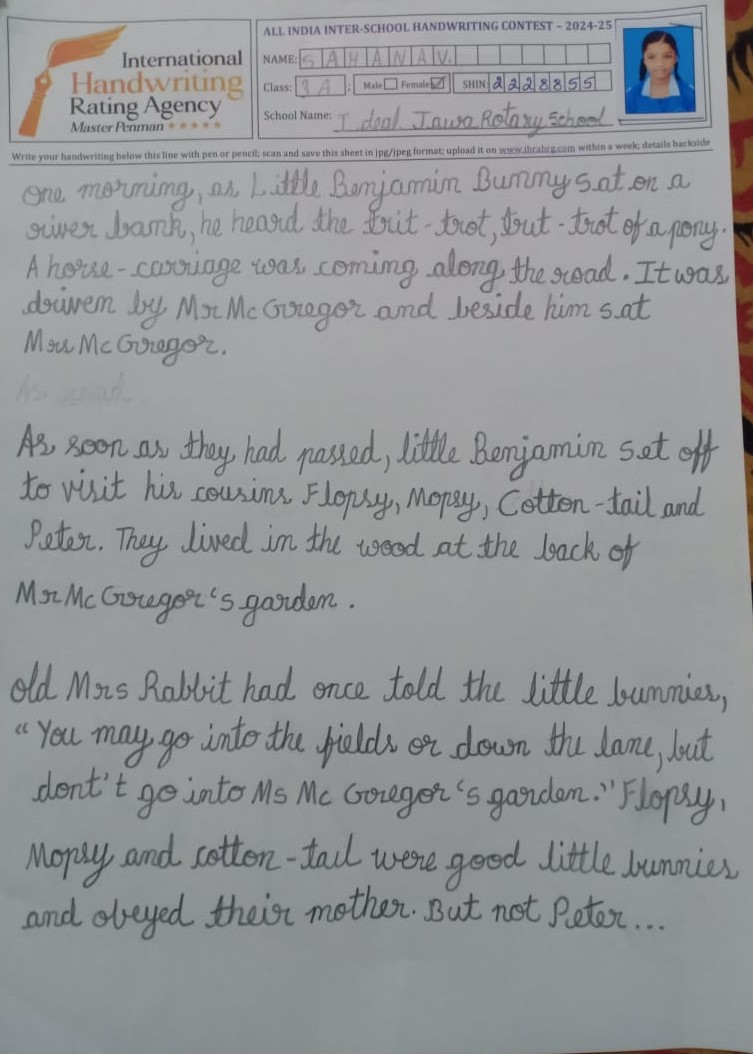 International
Handwriting
Rating Agency
Master Penman ★★★★★
ALL INDIA INTER-SCHOOL HANDWRITING CONTEST – 2024-25
NAME: SAHANA V.
Class: 3A ; Male Female ✓ SHIN: 2228855
School Name: Ideal Jawa Rotary School
Write your handwriting below this line with pen or pencil; scan and save this sheet in jpg/jpeg format; upload it on www.ihrahrg.com within a week; details backside
One morning, as Little Benjamin Bunny sat on a
river bank, he heard the trit-trot, trit-trot of a pony.
A horse-carriage was coming along the road. It was
driven by Mr McGregor and beside him sat
Mrs McGregor.
As soon as they had passed, little Benjamin set off
to visit his cousins Flopsy, Mopsy, Cotton-tail and
Peter. They lived in the wood at the back of
Mr McGregor's garden.
old Mrs Rabbit had once told the little bunnies,
"You may go into the fields or down the lane, but
dont't go into Ms McGregor's garden." Flopsy,
Mopsy and cotton-tail were good little bunnies
and obeyed their mother. But not Peter...